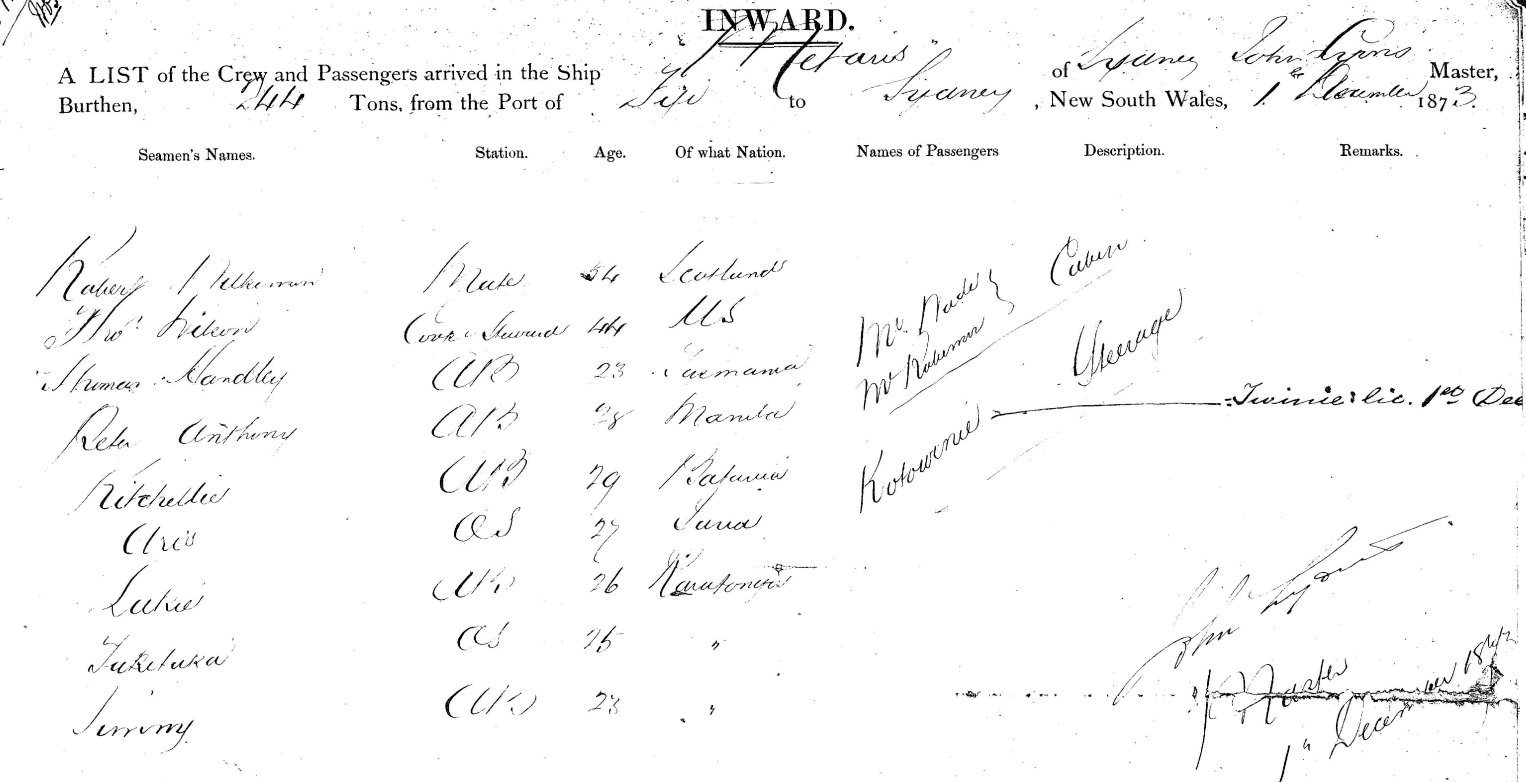 INWARD.
A LIST of the Crew and Passengers arrived in the Ship of Sydney John Lyons Master,
Burthen, 244 Tons, from the Port of Fiji to Sydney, New South Wales, 1st December 1873.
Seamen's Names. Station. Age. Of what Nation. Names of Passengers Description. Remarks.
Robert Mate 54 Scotland Mr. Wade Cabin
Thos Wilson Cook & Steward 44 US Mr
Thomas Handley AB 23 Tasmania Steerage
Peter Anthony AB 28 Manila Kotowinie 1st Dec
AB 29 Batavia
OS 27 Java
Lukie AB 26
OS 25 "
Jimmy AB 23 "
John Lyons
Master
1st December